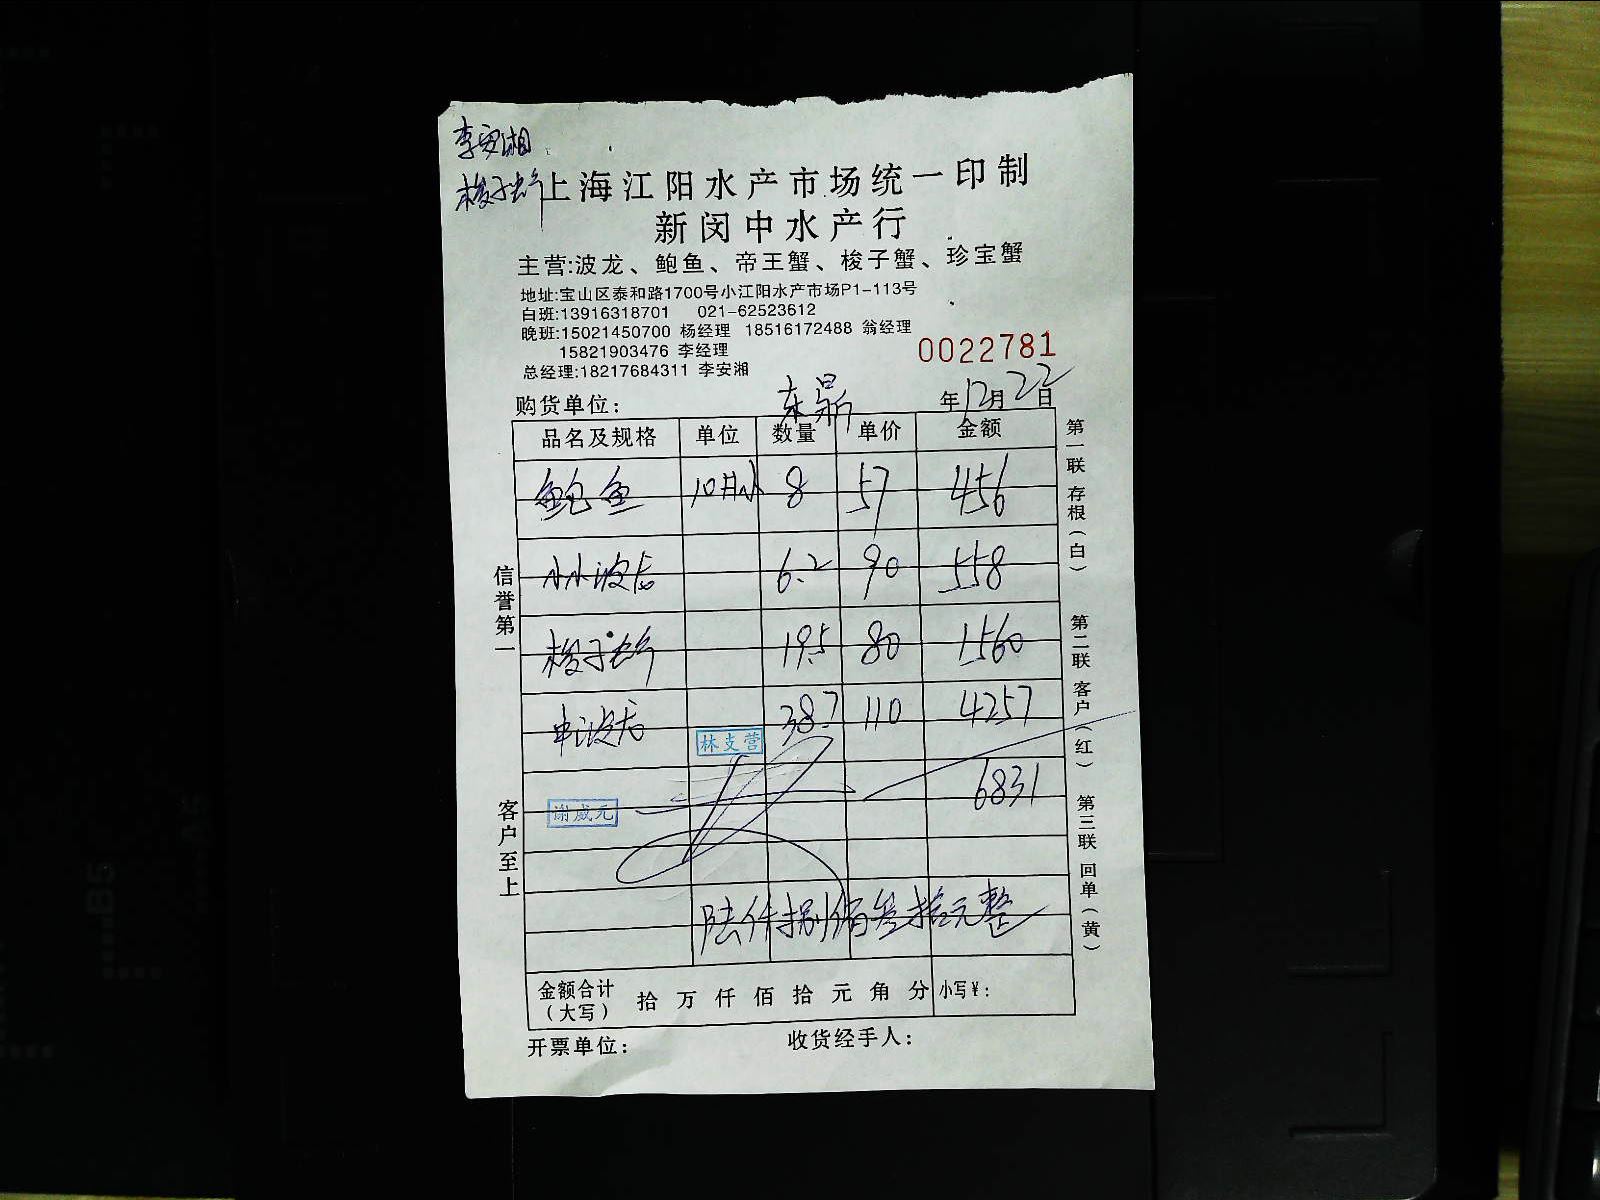 李安湘
梭子蟹
上海江阳水产市场统一印制
新闵中水产行
主营:波龙、鲍鱼、帝王蟹、梭子蟹、珍宝蟹
地址:宝山区泰和路1700号小江阳水产市场P1-113号
白班:13916318701 021-62523612
晚班:15021450700 杨经理 18516172488 翁经理
15821903476 李经理
总经理:18217684311 李安湘
0022781
购货单位: 东鼎 年12月22日
品名及规格 单位 数量 单价 金额
鲍鱼 10 8 57 456
小小波龙 6.2 90 558
梭子蟹 19.5 80 1560
中波龙 38.7 110 4257
林支营
6831
谢成元
陆仟捌佰叁拾元整
金额合计(大写) 拾 万 仟 佰 拾 元 角 分 小写¥:
开票单位: 收货经手人:
信誉第一
客户至上
第一联 存根(白)
第二联 客户(红)
第三联 回单(黄)